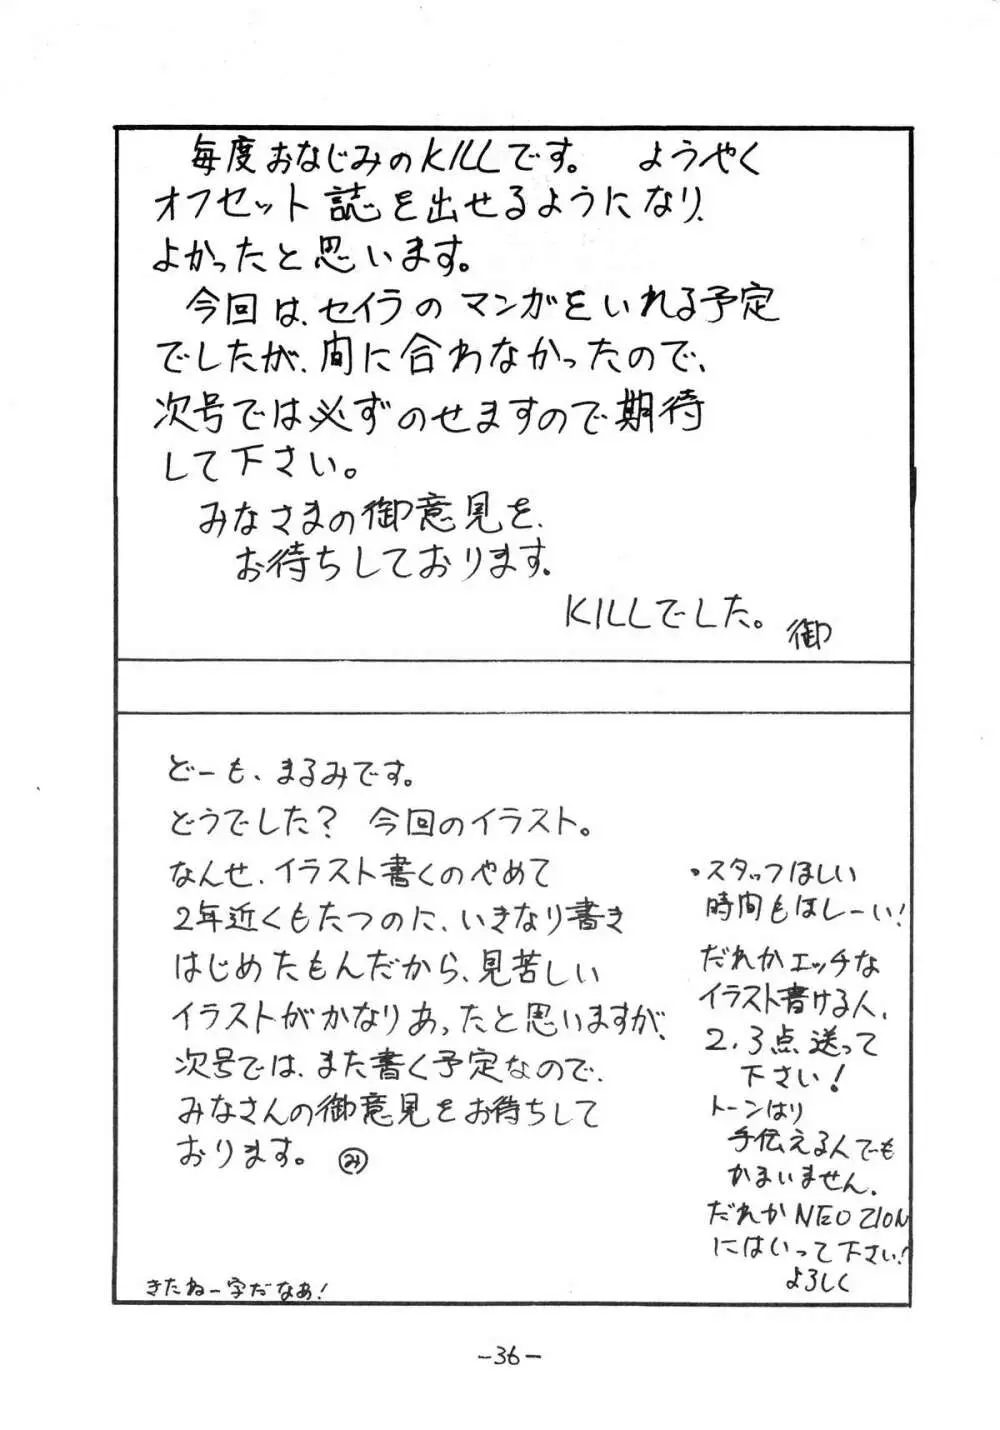 毎度おなじみのKILLです。 ようやく
オフセット誌を出せるようになり、
よかったと思います。
今回は、セイラのマンガをいれる予定
でしたが、間に合わなかったので、
次号では必ずのせますので期待
して下さい。
みなさまの御意見を、
お待ちしております。
KILLでした。
御
どーも、まるみです。
どうでした? 今回のイラスト。
なんせ、イラスト書くのやめて
2年近くもたつのに、いきなり書き
はじめたもんだから、見苦しい
イラストがかなりあったと思いますが、
次号では、また書く予定なので、
みなさんの御意見をお待ちして
おります。 み
きたねー字だなあ!
・スタッフほしい
時間もほしーい!
だれかエッチな
イラスト書ける人、
2、3点送って
下さい!
トーンはり
手伝える人でも
かまいません。
だれかNEO ZION
にはいって下さい!
よろしく
-36-